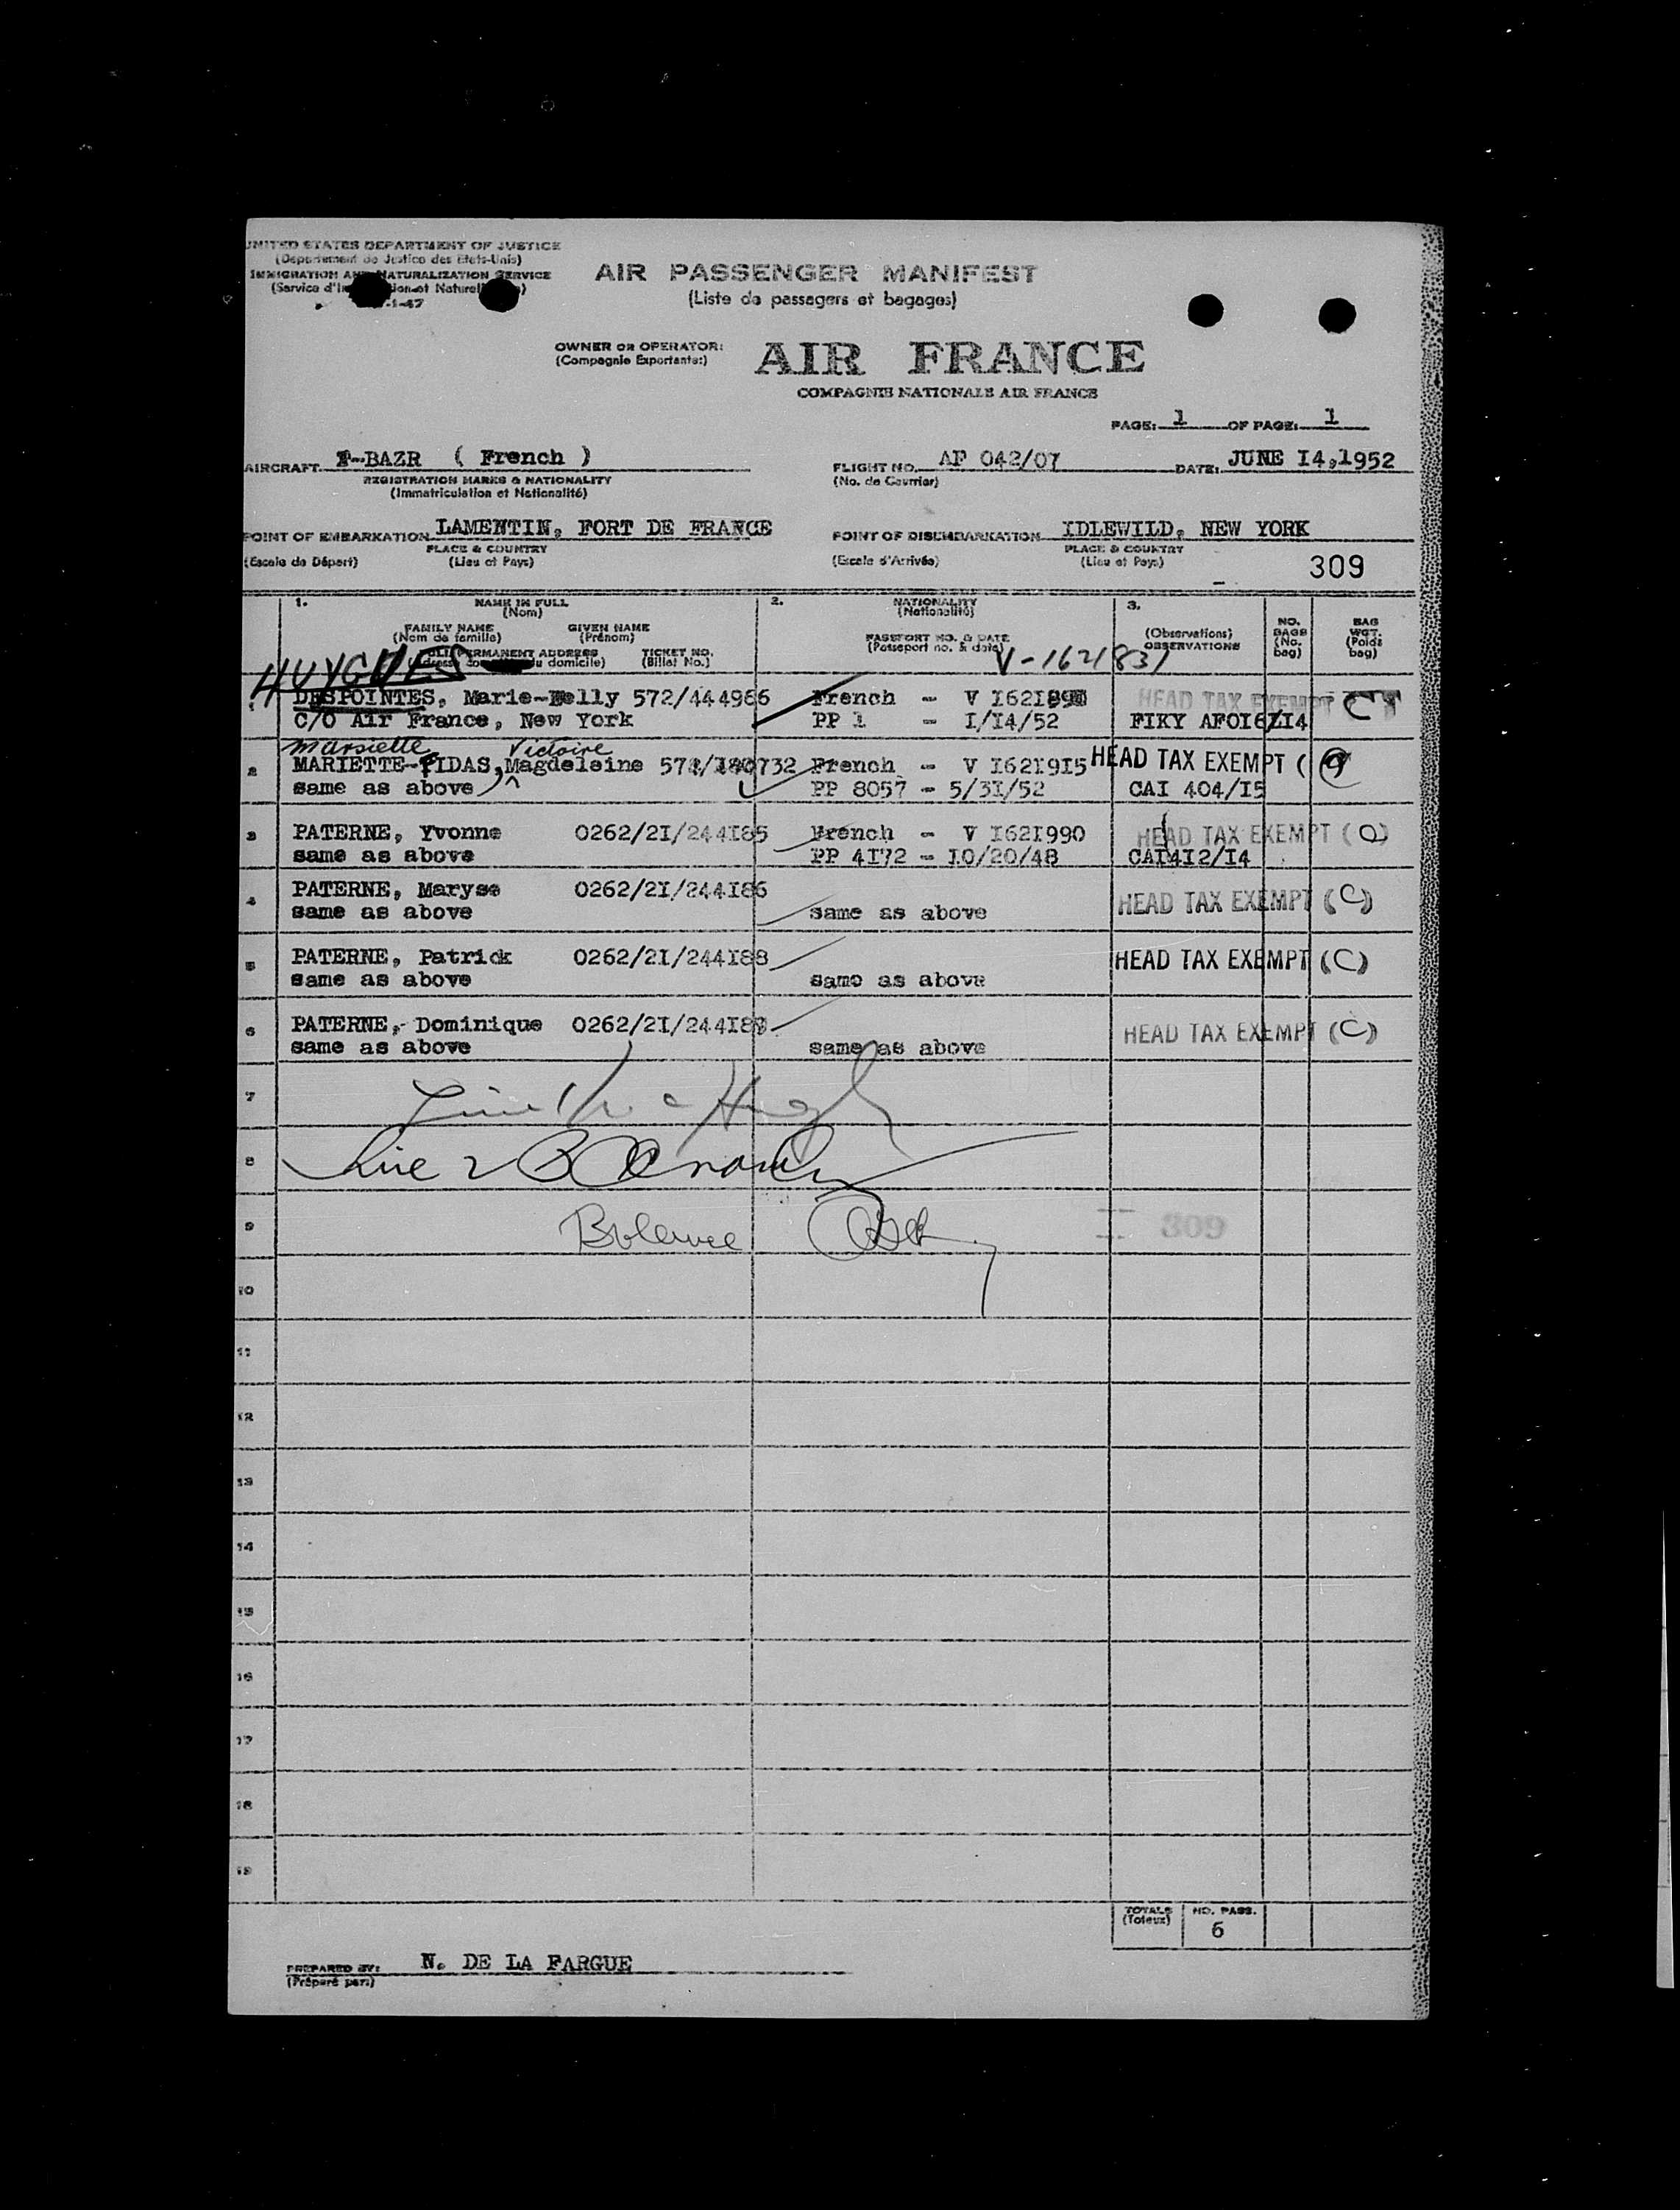 UNITED STATES DEPARTMENT OF JUSTICE
(Departement de Justice des Etats-Unis)
IMMIGRATION AND NATURALIZATION SERVICE
1-47
AIR PASSENGER MANIFEST
(Liste de passagers et bagages)
OWNER OR OPERATOR:
(Compagnie Exportante:)
AIR FRANCE
COMPAGNIE NATIONALE AIR FRANCE
PAGE: 1 OF PAGE: 1
AIRCRAFT F-BAZR ( French )
REGISTRATION MARKS & NATIONALITY
(Immatriculation et Nationalité)
FLIGHT NO. AF 042/07 DATE: JUNE I4,1952
(No. de Courrier)
POINT OF EMBARKATION LAMENTIN, FORT DE FRANCE
PLACE & COUNTRY
(Escale de Départ) (Lieu et Pays)
POINT OF DISEMBARKATION IDLEWILD, NEW YORK
PLACE & COUNTRY
(Escale d'Arrivée) (Lieu et Pays)
309
1. NAME IN FULL
(Nom)
FAMILY NAME GIVEN NAME
(Nom de famille) (Prénom)
PERMANENT ADDRESS TICKET NO.
du domicile) (Billet No.)
2. NATIONALITY
(Nationalité)
PASSPORT NO. & DATE
(Passeport no. & date)
3.
(Observations)
OBSERVATIONS
NO. BAGS (No. bag)
BAG WGT. (Poids bag)
HUYGUES V-1621831
1 DESPOINTES, Marie-Nelly 572/444986 French - V I621890 HEAD TAX EXEMPT
C/O Air France, New York PP 1 - I/I4/52 FIKY AFOI6/I14
Marsiette Victoire
2 MARIETTE-FIDAS, Magdeleine 572/180732 French - V I621915 HEAD TAX EXEMPT
same as above PP 8057 - 5/3I/52 CAI 404/I5
3 PATERNE, Yvonne 0262/2I/244I85 French - V I62I990 HEAD TAX EXEMPT (O)
same as above PP 4I72 - I0/20/48 CAI412/I4
4 PATERNE, Maryse 0262/2I/244I86 HEAD TAX EXEMPT (C)
same as above same as above
5 PATERNE, Patrick 0262/2I/244I88 HEAD TAX EXEMPT (C)
same as above same as above
6 PATERNE, Dominique 0262/2I/244I89 HEAD TAX EXEMPT (C)
same as above same as above
7
8 Line 2
9 309
10
11
12
13
14
15
16
17
18
19
TOTALS (Totaux) NO. PASS. 6
PREPARED BY: N. DE LA FARGUE
(Préparé par:)